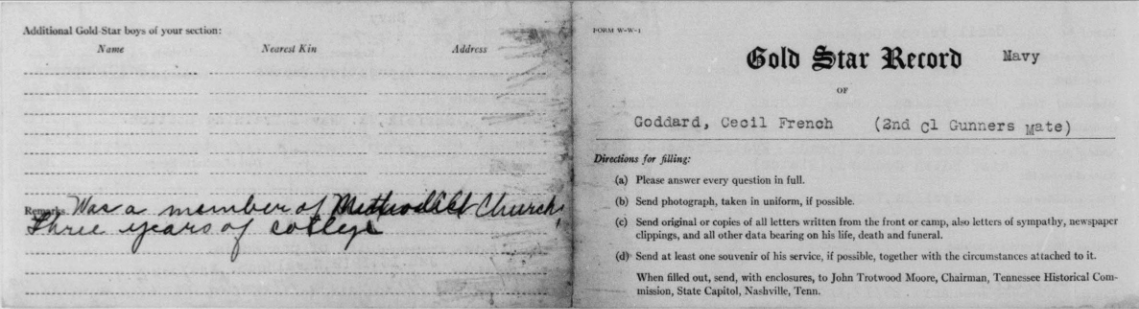 Additional Gold Star boys of your section:
Name Nearest Kin Address
Remarks Was a member of Methodist Church
Three years of college
FORM W-W-1
Gold Star Record Navy
OF
Goddard, Cecil French (2nd Cl Gunners Mate)
Directions for filling:
(a) Please answer every question in full.
(b) Send photograph, taken in uniform, if possible.
(c) Send original or copies of all letters written from the front or camp, also letters of sympathy, newspaper
clippings, and all other data bearing on his life, death and funeral.
(d) Send at least one souvenir of his service, if possible, together with the circumstances attached to it.
When filled out, send, with enclosures, to John Trotwood Moore, Chairman, Tennessee Historical Com-
mission, State Capitol, Nashville, Tenn.